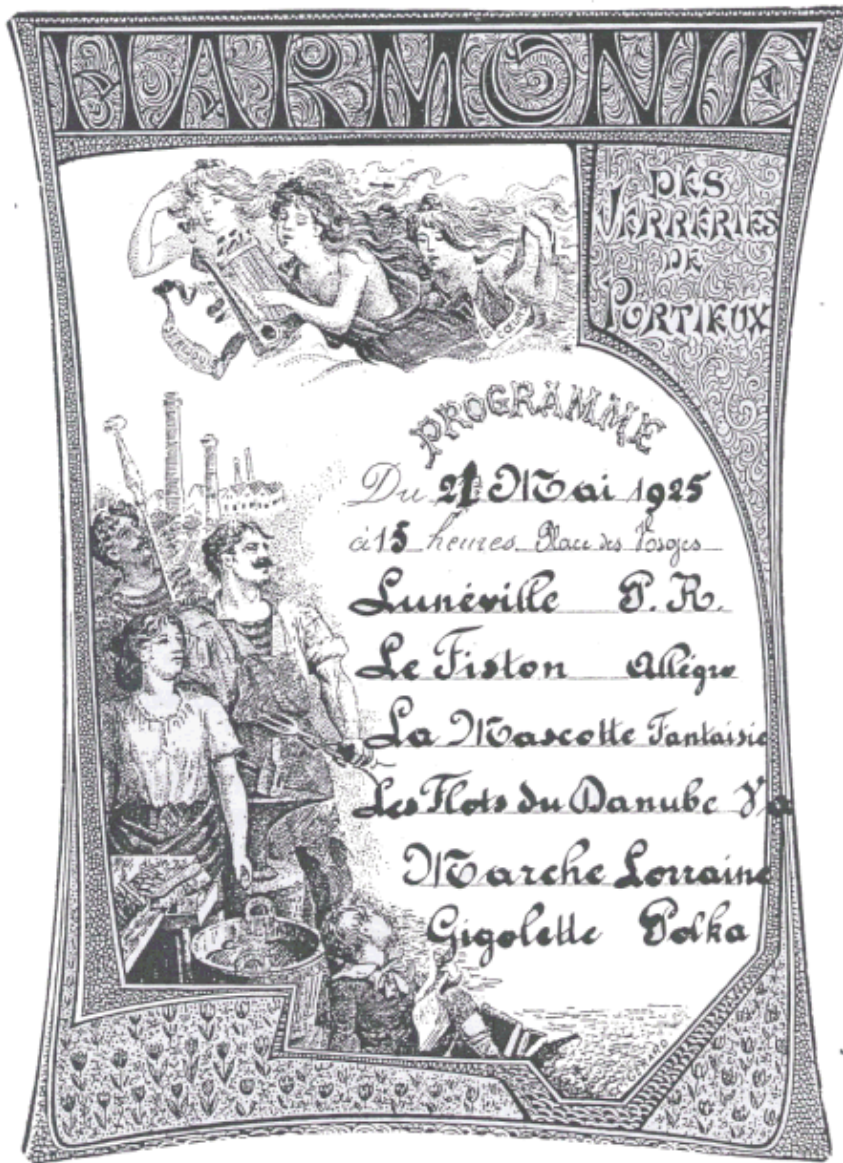 HARMONIE
DES
VERRERIES
DE
PORTIEUX
PROGRAMME
Du 21 Mai 1925
à 15 heures Place des Vosges
Lunéville P. R.
Le Fiston Allégro
La Mascotte Fantaisie
Les Flots du Danube Va
Marche Lorraine
Gigolette Polka